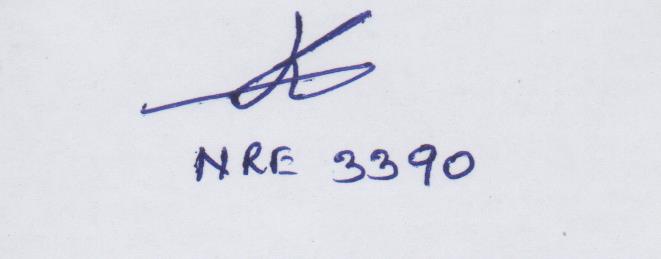 NRE 3390